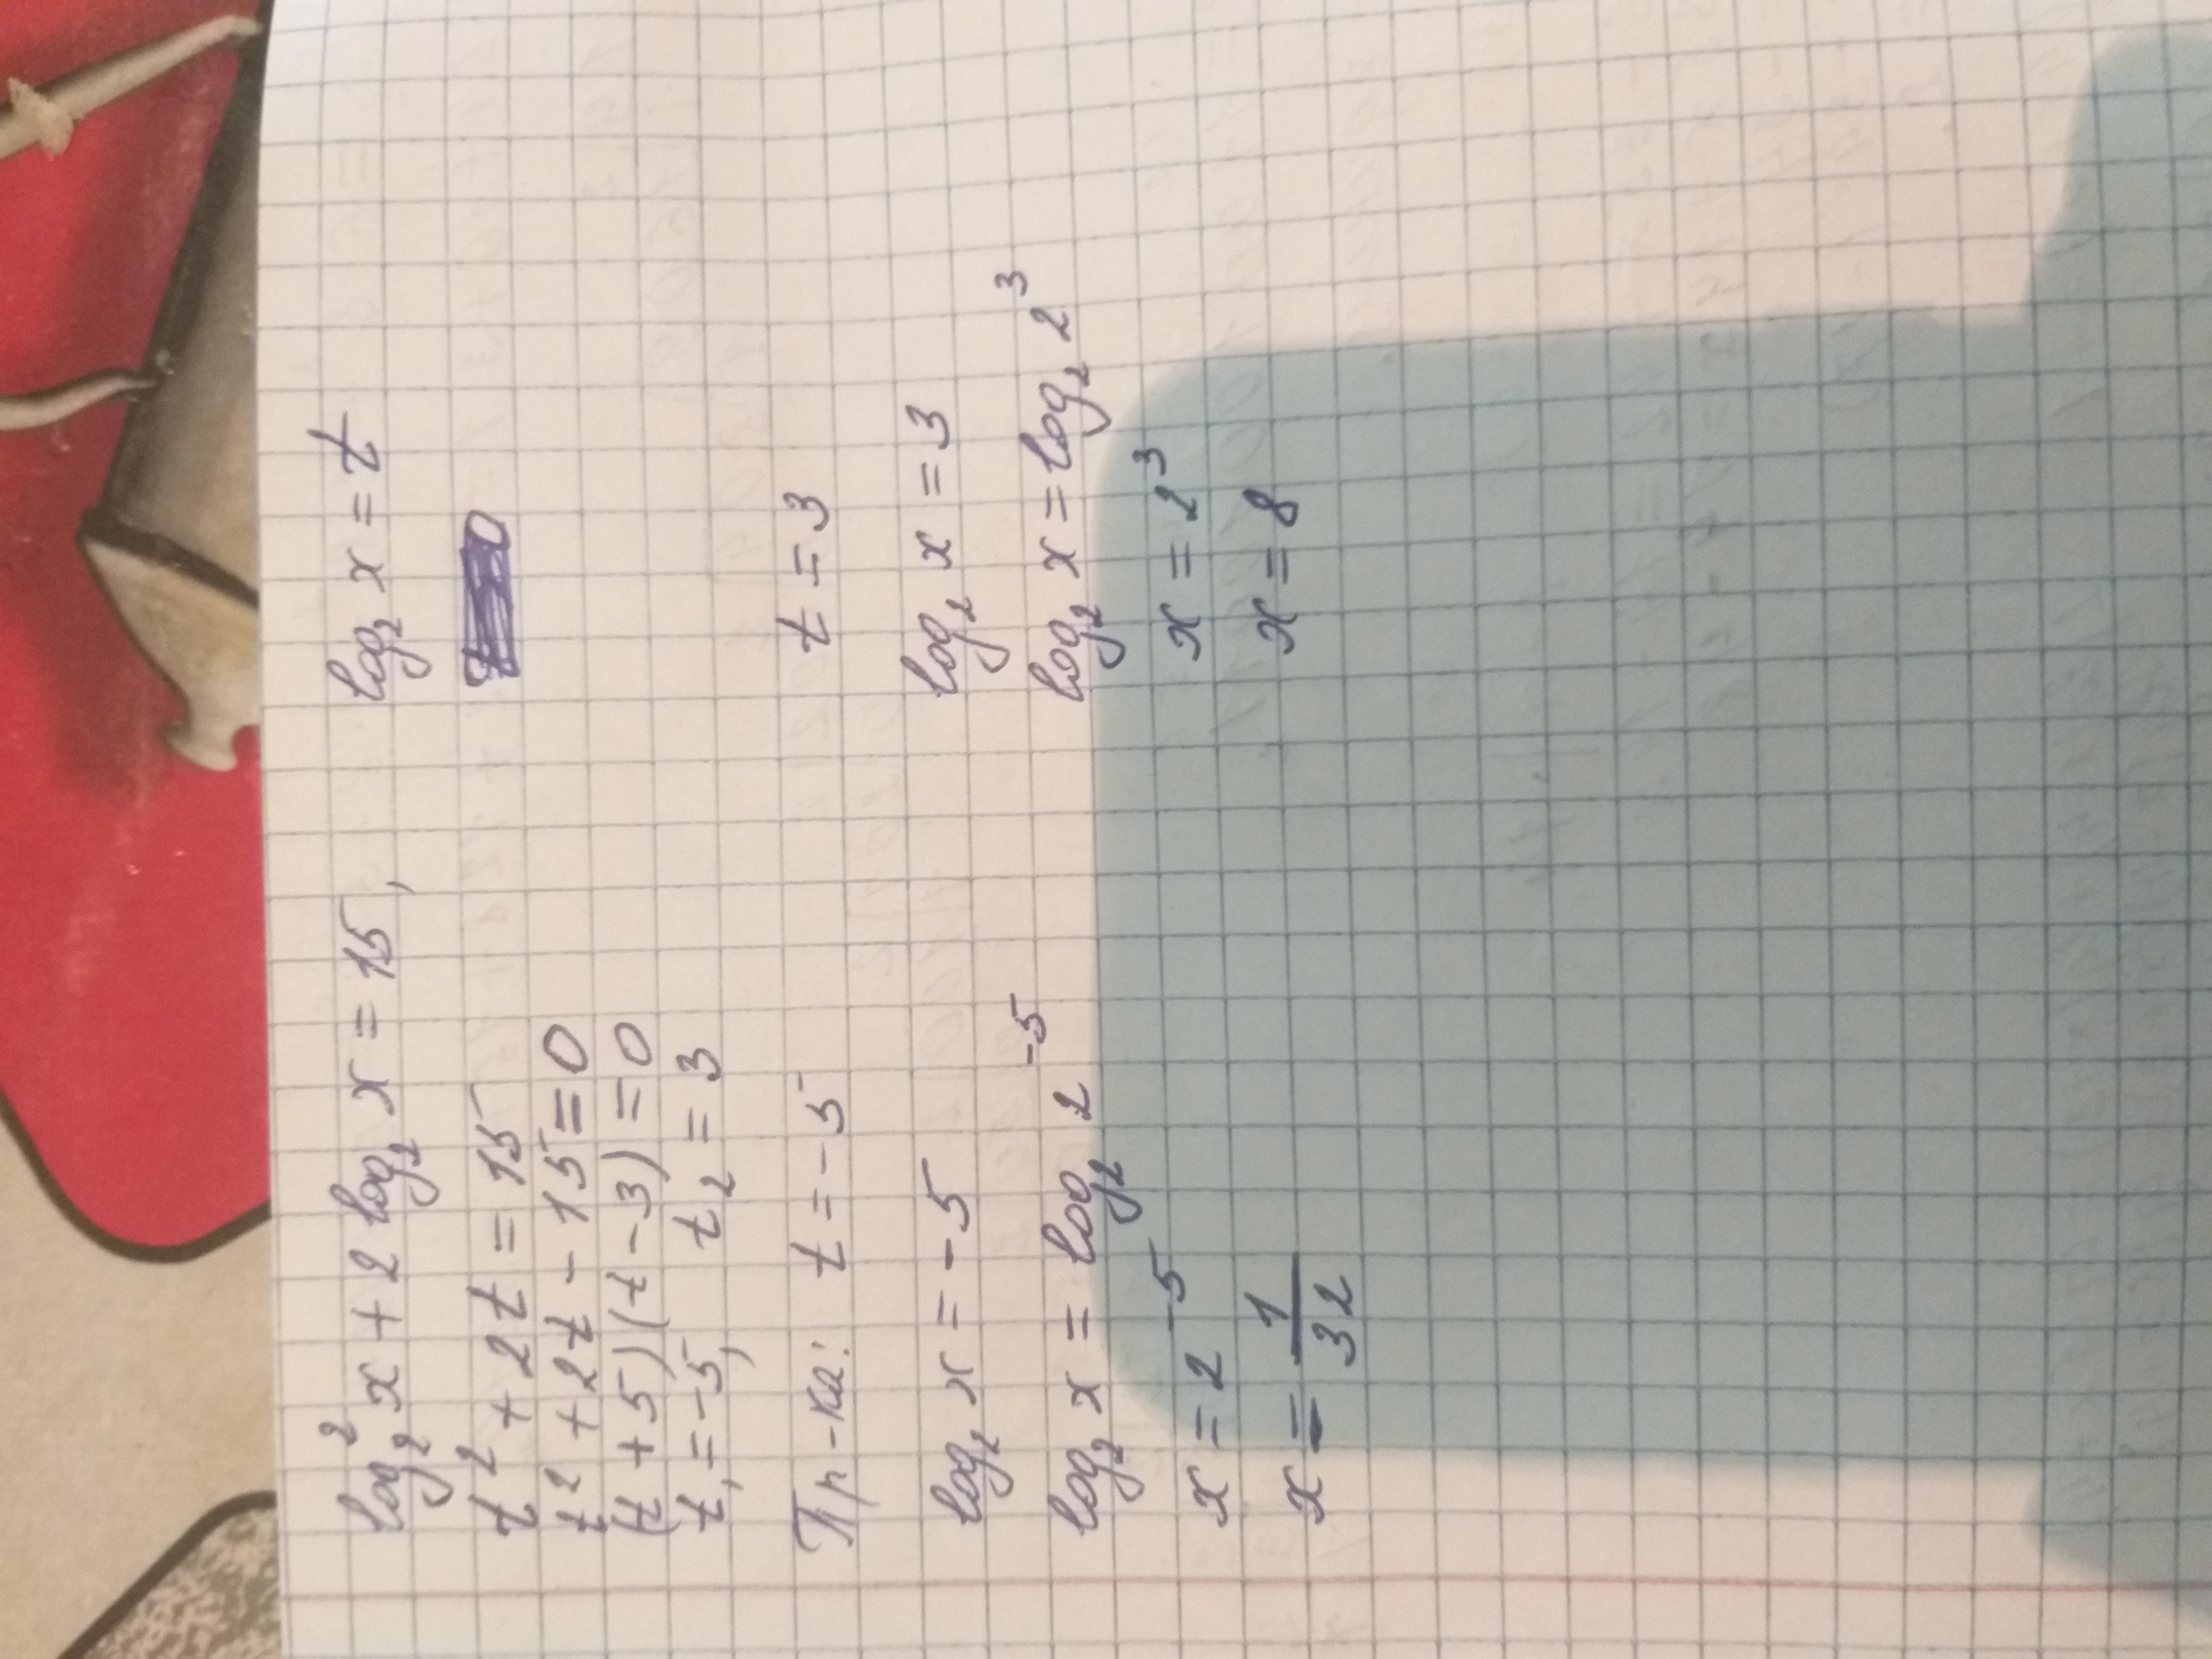 log₂²x + 2 log₂x = 15, log₂x = t
t² + 2t = 15
t² + 2t - 15 = 0
(t + 5)(t - 3) = 0
t₁ = -5, t₂ = 3
Пр-ка: t = -5 t = 3
log₂x = -5 log₂x = 3
log₂x = log₂2⁻⁵ log₂x = log₂2³
x = 2⁻⁵ x = 2³
x = 1/32 x = 8